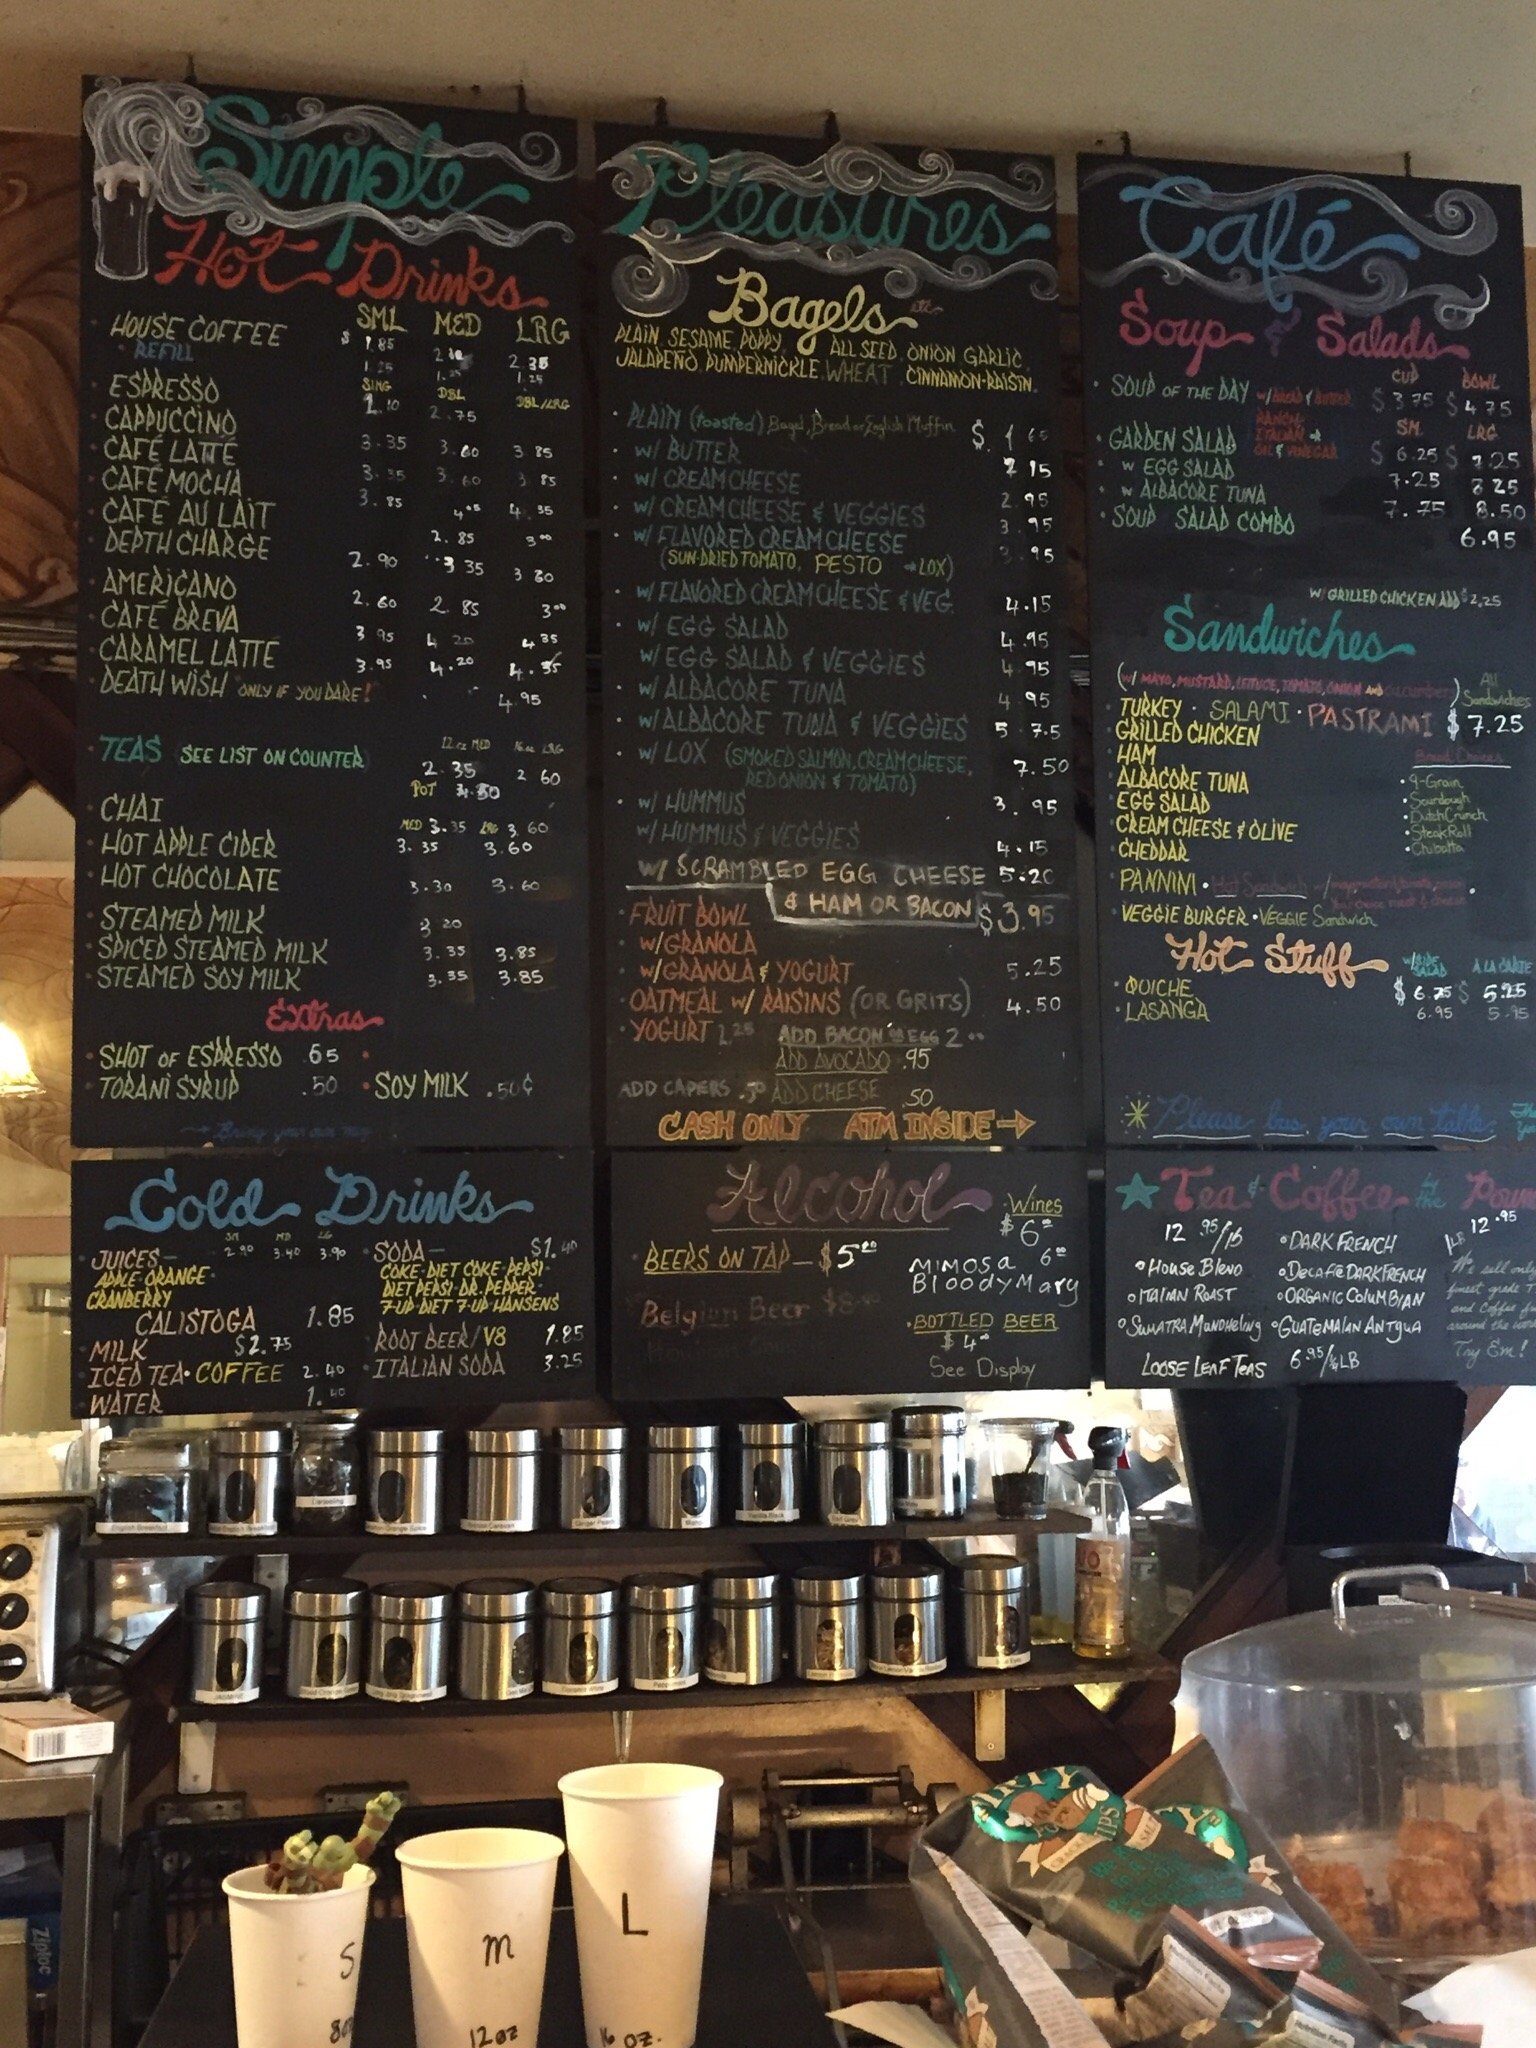 Simple
Hot Drinks
SML MED LRG
HOUSE COFFEE $ 1.85 2.35
REFILL 1.25 1.25 1.25
SING DBL DBL/LRG
ESPRESSO 2.10 2.75
CAPPUCCINO 3.35 3.60 3.85
CAFÉ LATTÉ 3.35 3.60 3.85
CAFÉ MOCHA 3.85 4.05 4.35
CAFÉ AU LAIT 2.85 3.00
DEPTH CHARGE 2.90 3.35 3.80
AMERICANO 2.60 2.85 3.00
CAFÉ BREVA 3.95 4.20 4.35
CARAMEL LATTÉ 3.95 4.20 4.35
DEATH WISH ONLY IF YOU DARE! 4.95
TEAS SEE LIST ON COUNTER 12oz MED 16oz LRG
2.35 2.60
POT 4.50
CHAI MED 3.35 LRG 3.60
HOT APPLE CIDER 3.35 3.60
HOT CHOCOLATE 3.30 3.60
STEAMED MILK 3.20
SPICED STEAMED MILK 3.35 3.85
STEAMED SOY MILK 3.35 3.85
EXtras
SHOT OF ESPRESSO .65
TORANI SYRUP .50 • SOY MILK .50¢
→ Bring your own mug
Pleasures
Bagels etc.
PLAIN, SESAME, POPPY, ALL SEED, ONION, GARLIC,
JALAPEÑO, PUMPERNICKLE, WHEAT, CINNAMON-RAISIN.
• PLAIN (toasted) Bagel, Bread or English Muffin $ 1.65
• W/ BUTTER 2.15
• W/ CREAM CHEESE 2.95
• W/ CREAM CHEESE & VEGGIES 3.95
• W/ FLAVORED CREAM CHEESE 3.95
(SUN-DRIED TOMATO, PESTO → LOX)
• W/ FLAVORED CREAM CHEESE & VEG. 4.15
• W/ EGG SALAD 4.95
• W/ EGG SALAD & VEGGIES 4.95
• W/ ALBACORE TUNA 4.95
• W/ ALBACORE TUNA & VEGGIES 5.75
• W/ LOX (SMOKED SALMON, CREAM CHEESE, 7.50
RED ONION & TOMATO)
• W/ HUMMUS 3.95
W/ HUMMUS & VEGGIES 4.15
W/ SCRAMBLED EGG CHEESE 5.20
& HAM OR BACON
• FRUIT BOWL $3.95
• W/GRANOLA
W/GRANOLA & YOGURT 5.25
• OATMEAL W/ RAISINS (OR GRITS) 4.50
• YOGURT 2.25 ADD BACON OR EGG 2.00
ADD AVOCADO .95
ADD CAPERS .50 ADD CHEESE .50
CASH ONLY ATM INSIDE →
Café
Soup & Salads
CUP BOWL
• SOUP OF THE DAY W/ BREAD & BUTTER $ 3.75 $ 4.75
SM. LRG.
• GARDEN SALAD RANCH, ITALIAN OIL & VINEGAR $ 6.25 $ 7.25
• W EGG SALAD 7.25 8.25
• W ALBACORE TUNA 7.75 8.50
• SOUP SALAD COMBO 6.95
W/ GRILLED CHICKEN ADD $2.25
Sandwiches
(W/ MAYO, MUSTARD, LETTUCE, TOMATO, ONION AND cucumbers) All Sandwiches
• TURKEY • SALAMI • PASTRAMI $ 7.25
GRILLED CHICKEN
HAM
ALBACORE TUNA • 9-Grain
EGG SALAD • Sourdough
CREAM CHEESE & OLIVE • Dutch Crunch
CHEDDAR • Steak Roll
• Chibatta
• PANNINI • Hot Sandwich
• VEGGIE BURGER • VEGGIE Sandwich
Hot Stuff W/SIDE SALAD A LA CARTE
• QUICHE $ 6.75 $ 5.25
• LASANGA 6.95 5.95
Please bus your own table
Cold Drinks
SM MD LG
JUICES — 2.90 3.40 3.90
APPLE • ORANGE •
CRANBERRY
CALISTOGA 1.85
• MILK $2.75
• ICED TEA • COFFEE 2.40
WATER 1.40
• SODA — $1.40
COKE • DIET COKE • PEPSI •
DIET PEPSI • DR. PEPPER
7-UP • DIET 7-UP • HANSENS
ROOT BEER/V8 1.85
• ITALIAN SODA 3.25
Alcohol
• Wines
$ 6.00
• BEERS ON TAP — $5.00
MIMOSA 6.00
Bloody Mary
Belgian Beer
• BOTTLED BEER
$ 4.00
See Display
Tea & Coffee
12.95/lb
• House Blend
• ITALIAN ROAST
• SUMATRA MUNDHELING
• DARK FRENCH
• Decafe DARK FRENCH
• ORGANIC COLUMBIAN
• GUATEMALAN ANTGUA
LOOSE LEAF TEAS 6.95/¼LB
1LB 12.95
We sell only
finest grade
and Coffee
around the
Try Em!
English Breakfast
Darjeeling
Vanilla Black
S
M
12 oz
L
16 oz.
Ziploc
CHIPS